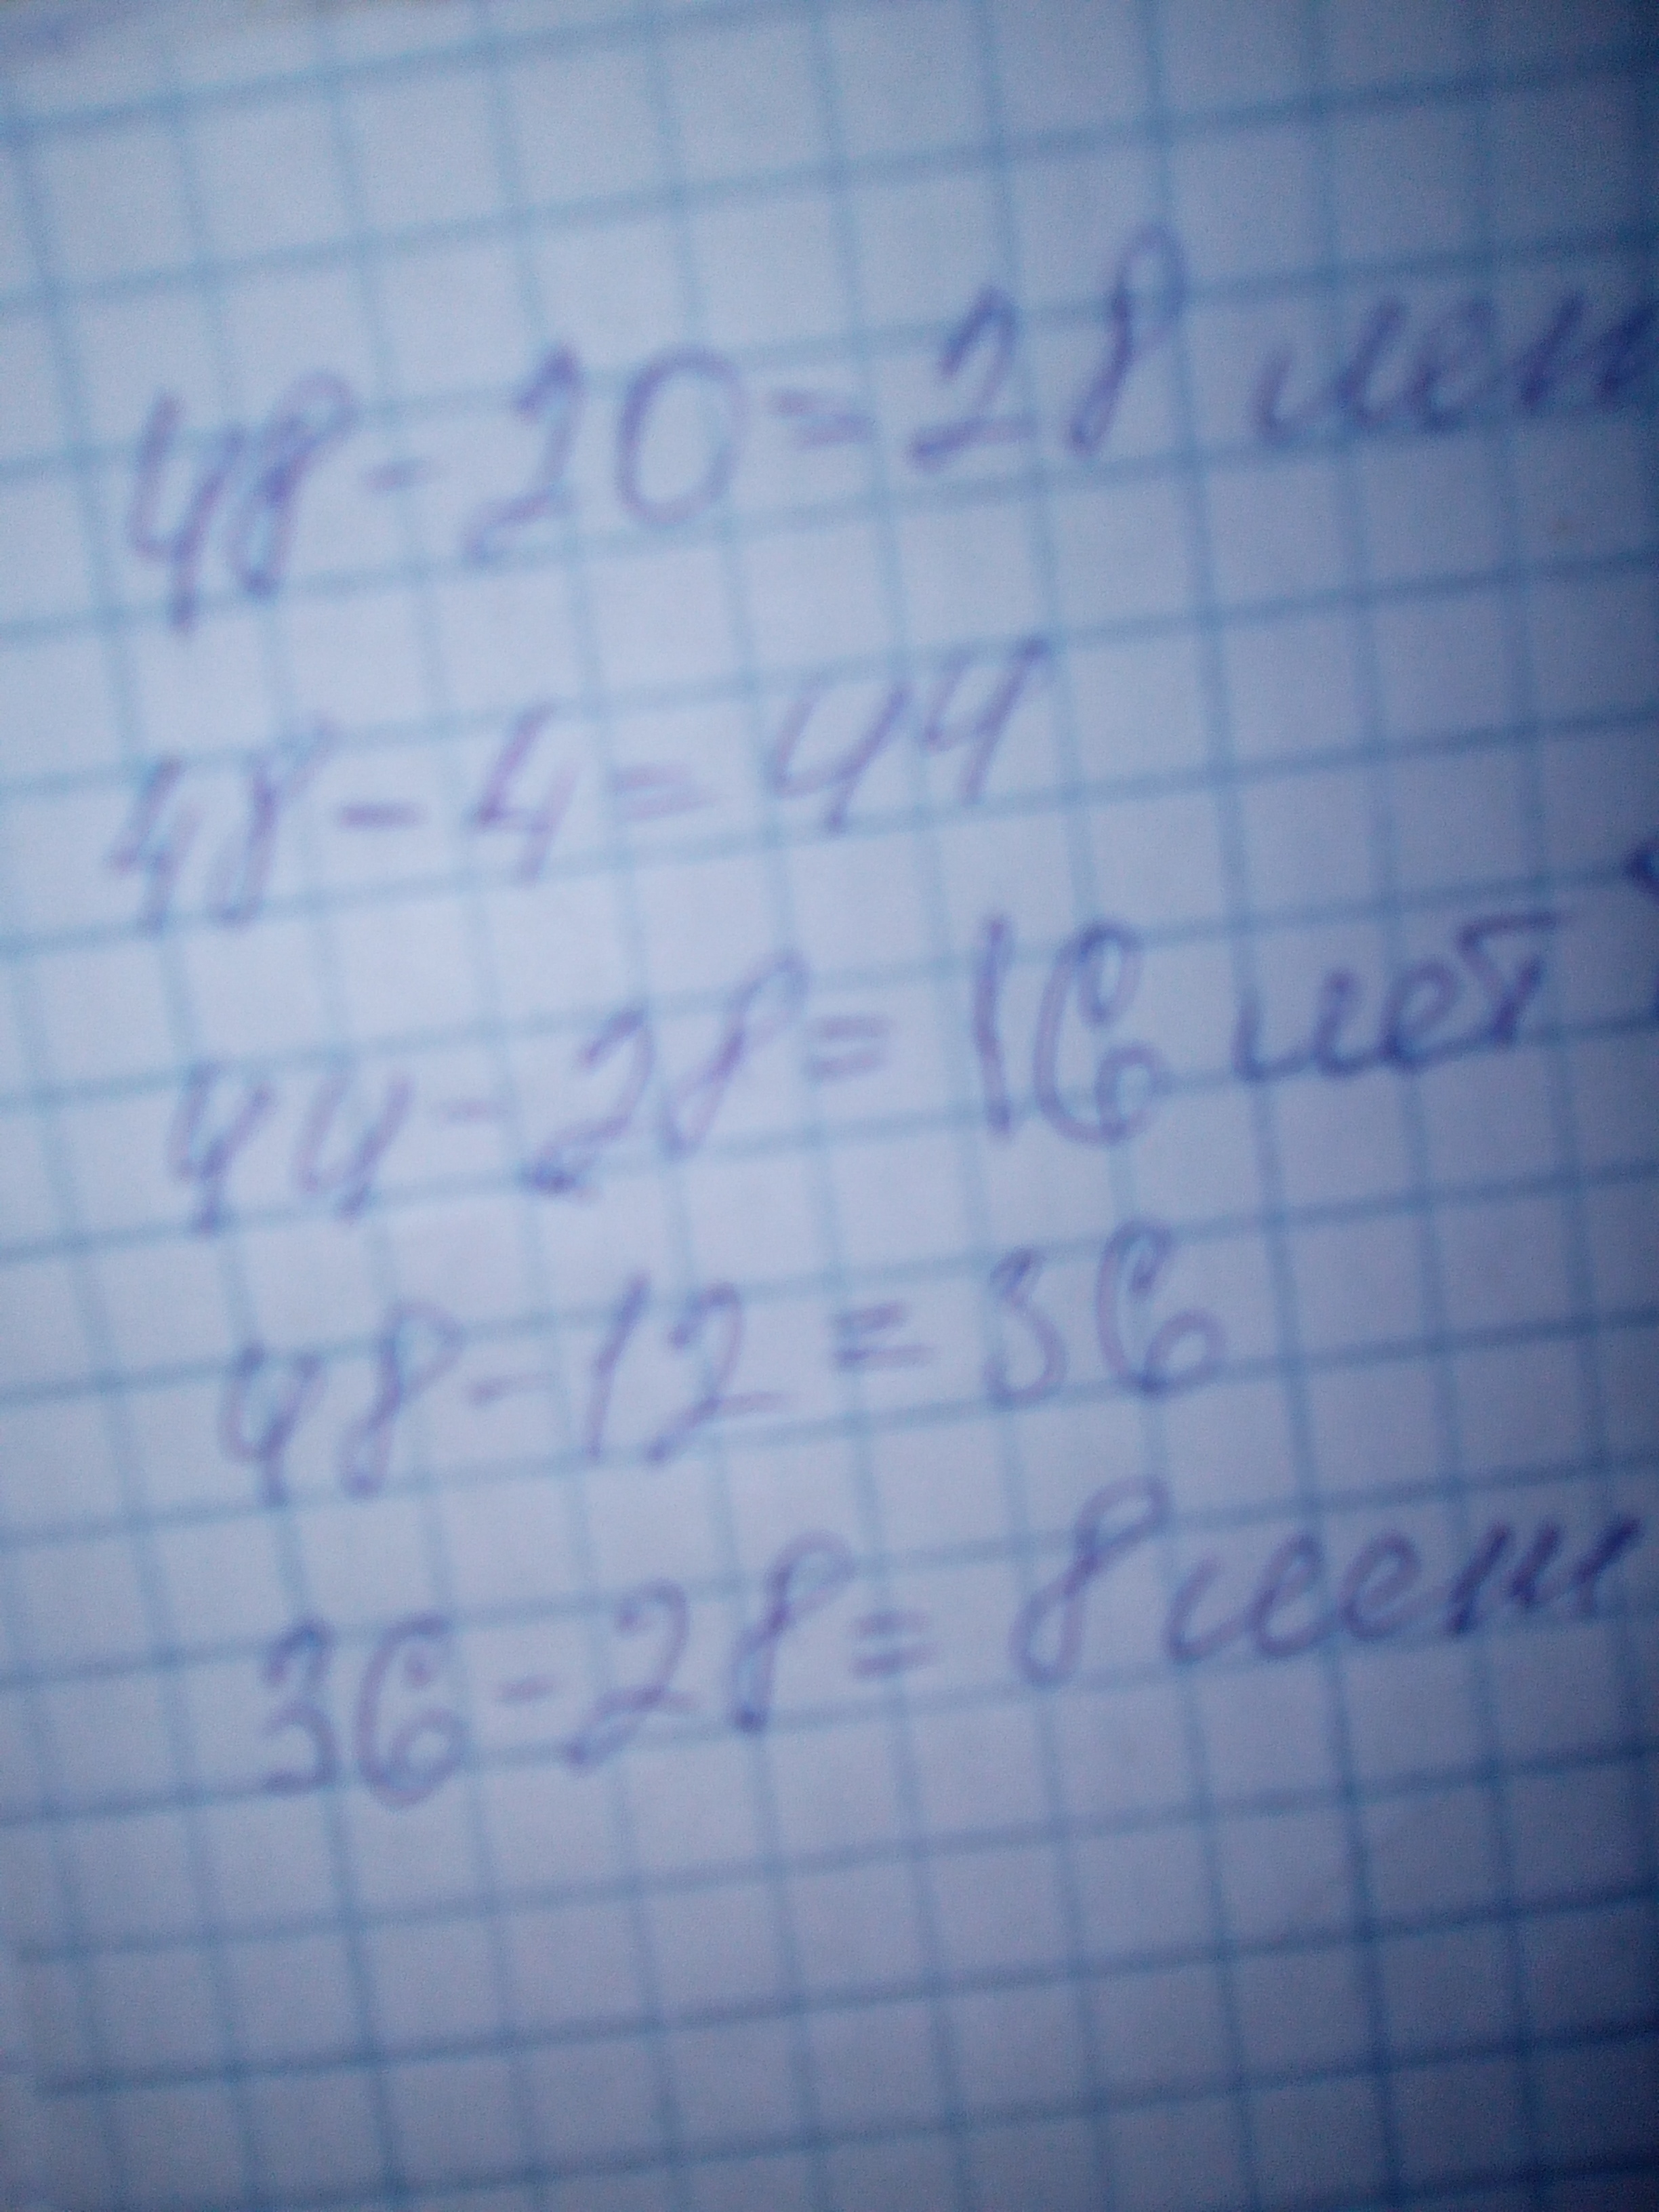 48-20=28 лет
48-4=44
44-28=16 лет
48-12=36
36-28=8 лет